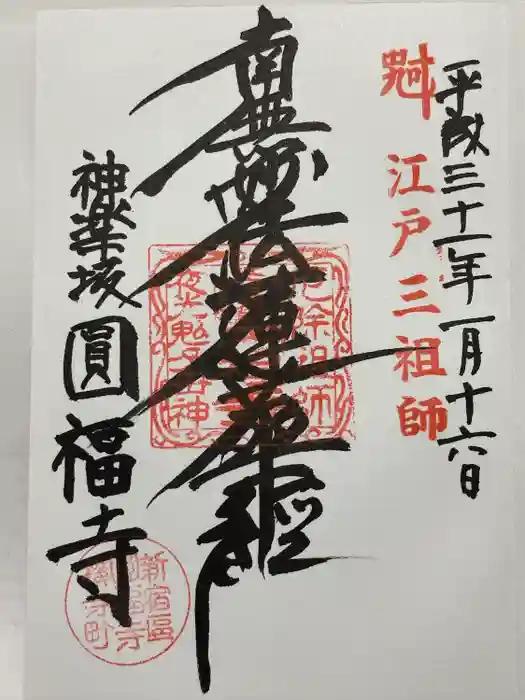 平成三十一年一月十六日
江戸三祖師
南無妙法蓮華経
神楽坂
圓福寺
厄除祖師
新宿區
圓福寺
横寺町